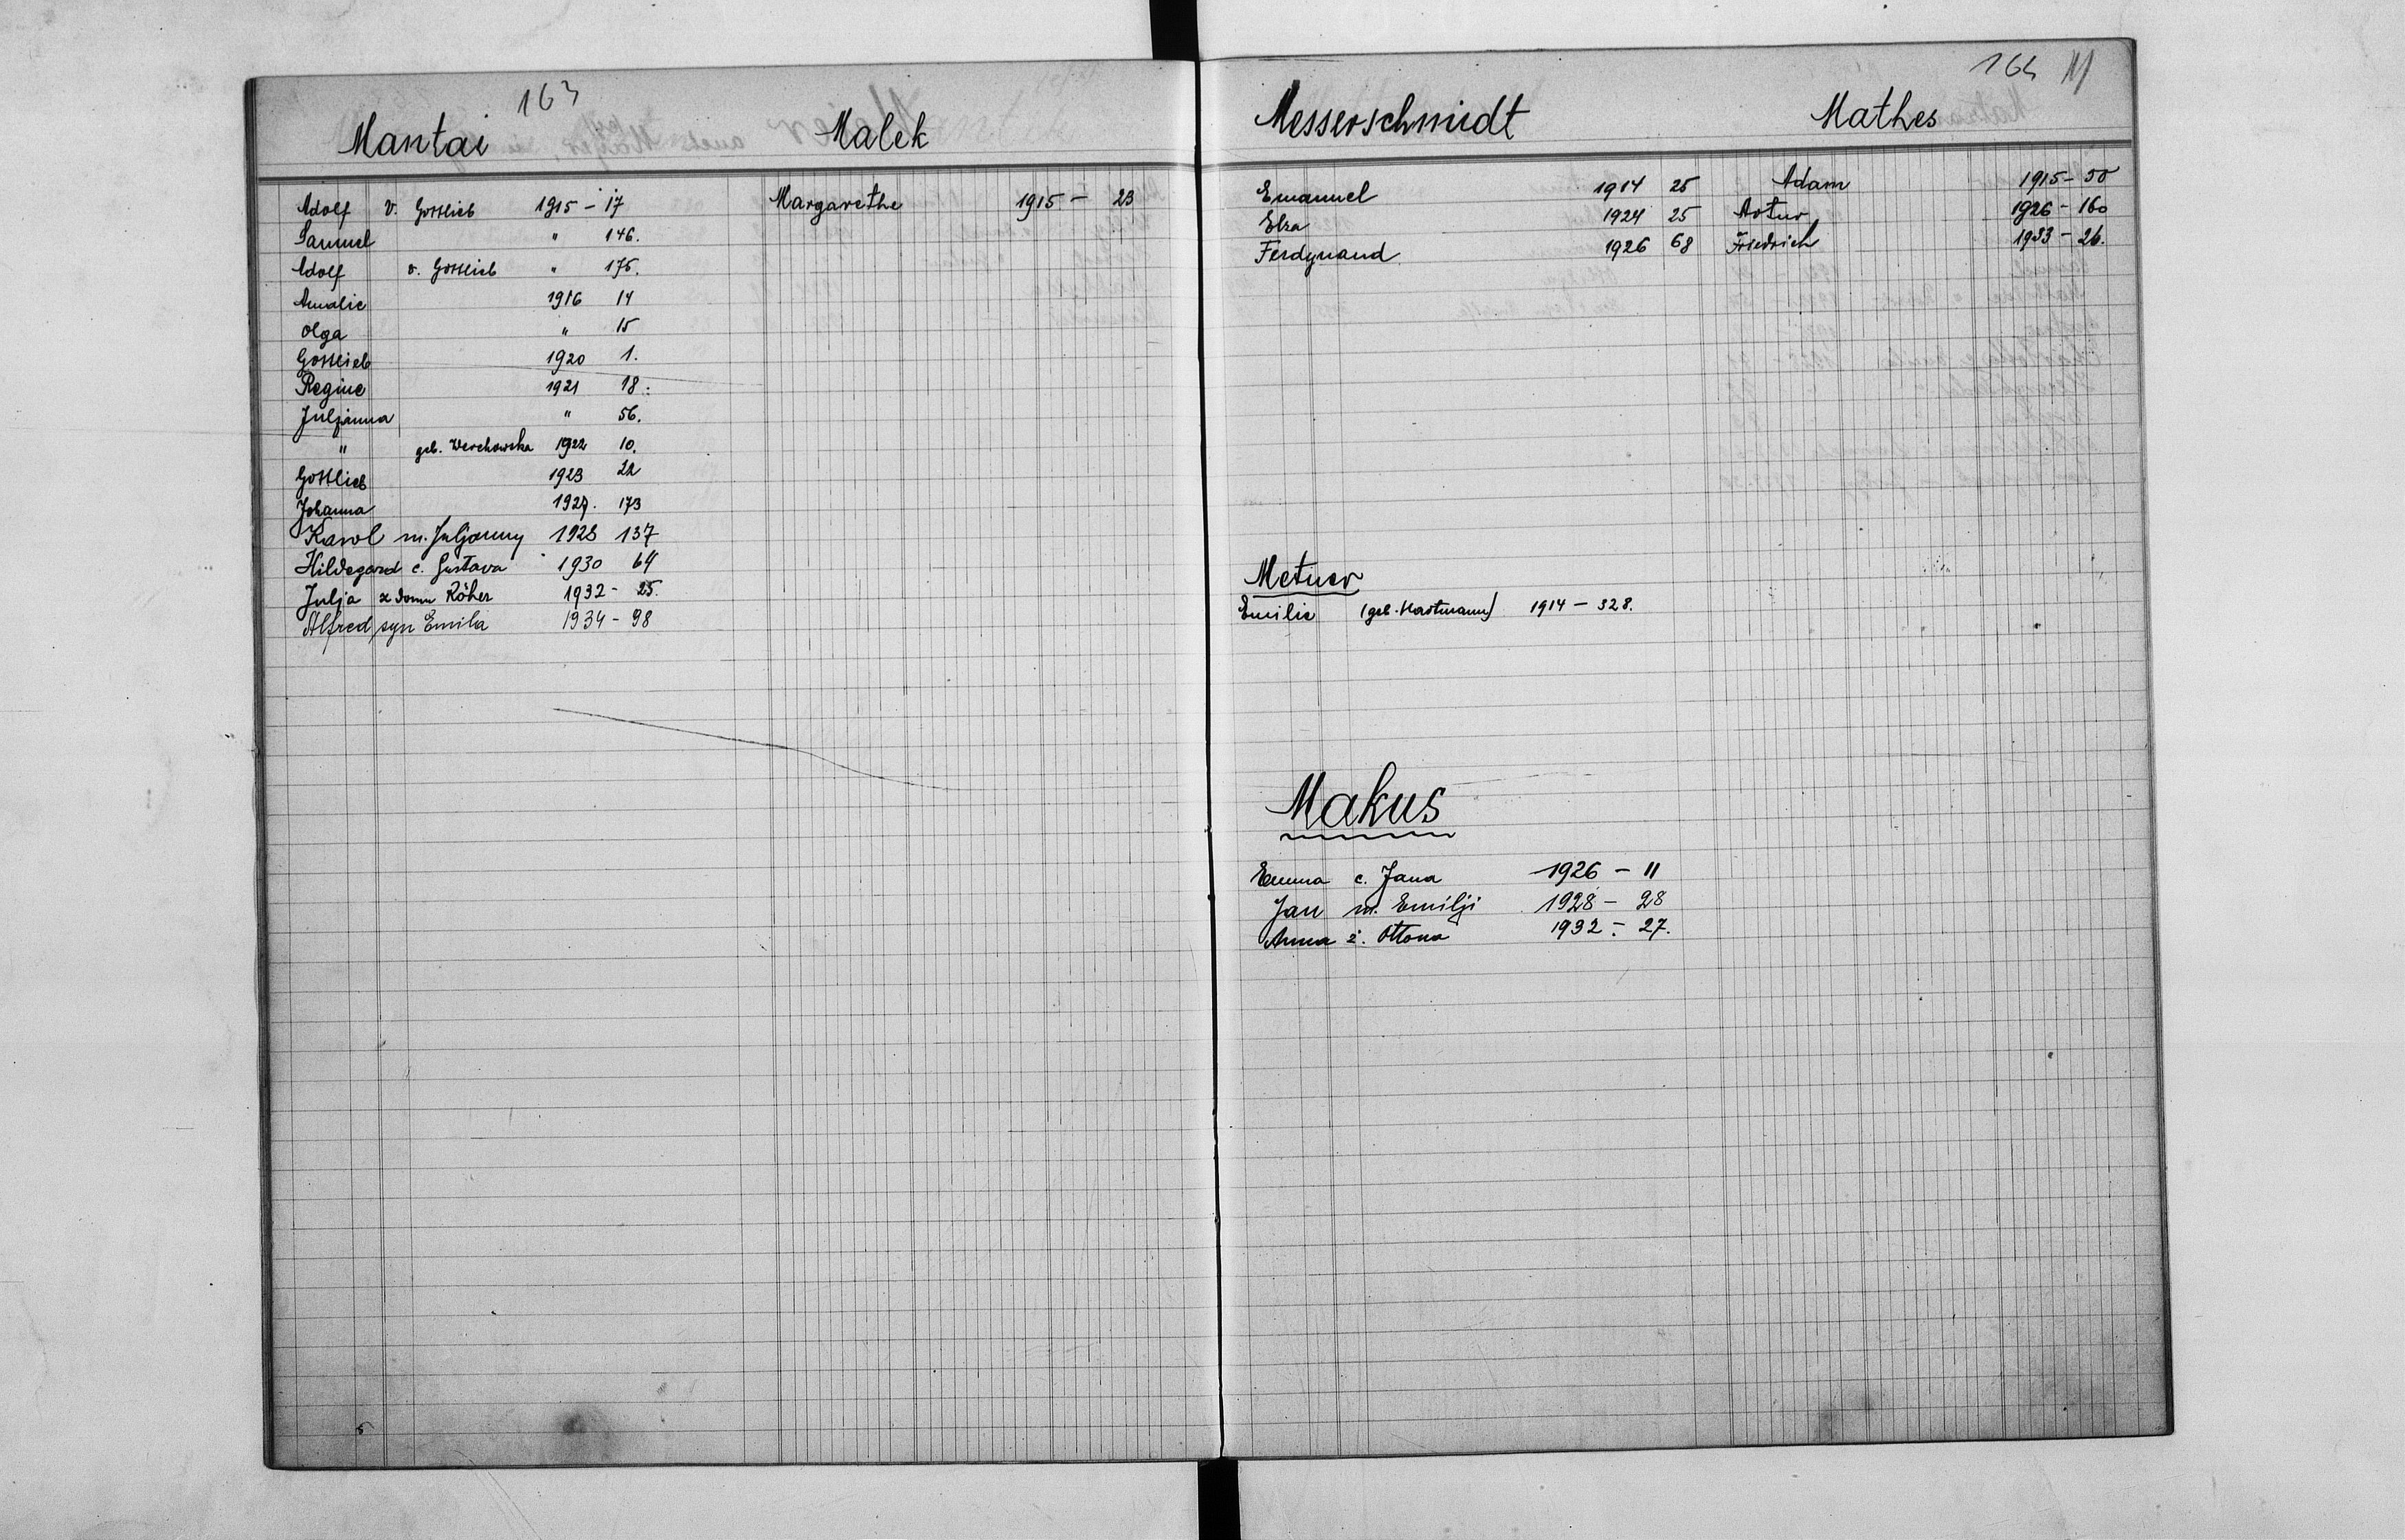 163
Mantai
Adolf v. Gottlieb 1915 - 17
Samuel " 146.
Adolf v. Gottlieb " 175.
Amalie 1916 14
Olga " 15
Gottlieb 1920 1.
Regine 1921 18.
Juljanna " 56.
" geb. Werchowska 1922 10.
Gottlieb 1923 22
Johanna 1927. 173
Karol m. Juljanny 1928 137
Hildegard c. Gustava 1930 64
Julja z domu Röher 1932 - 25.
Alfred syn Emila 1934 - 98
Malek
Margarethe 1915 - 23
164 M
Messerschmidt
Emanuel 1914 25
Elza 1924 25
Ferdynand 1926 68
Metner
Emilie (geb. Hartmann) 1914 - 328.
Makus
Emma c. Jana 1926 - 11
Jan m. Emilji 1928 - 28
Anna ż. Ottona 1932 - 27.
Mathes
Adam 1915 - 50
Artur 1926 - 160
Friedrich 1933 - 26.